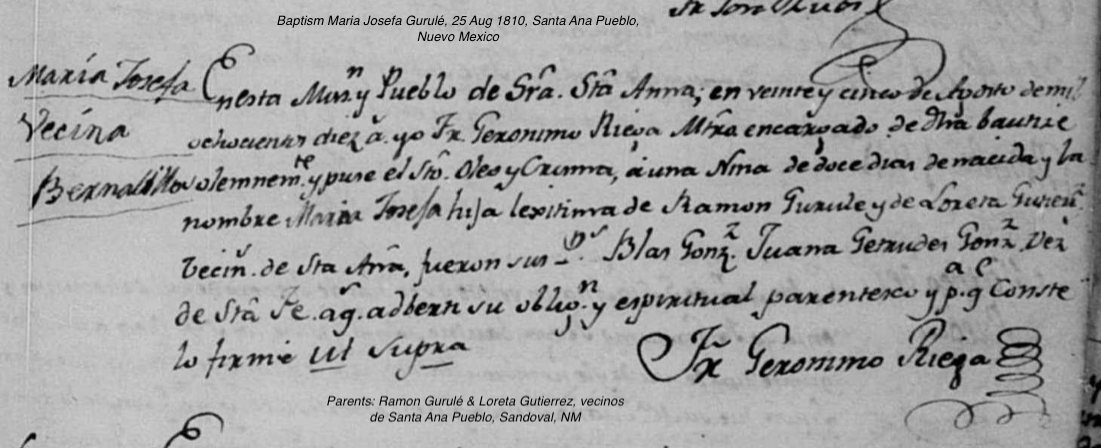 Baptism Maria Josefa Gurulé, 25 Aug 1810, Santa Ana Pueblo,
Nuevo Mexico
Maria Josefa
Vecina
Bernalillo
Enesta Misn. y Pueblo de Srâ. Stâ Anna; en veinte y cinco de Agosto de mil
ochocientos diez a. yo Fr. Geronimo Riega Mtro encargado de dha bautize
solemnemte. y puse el Sto. Oleo y Crisma, á una Niña de doce dias de nacida y la
nombre Maria Josefa hija lexitima de Ramon Gurule y de Loreta
Vecins. de Sta Anâ, fueron sus Ps. Blas Gonz. Juana Getrudes Gonz. Vez
de Stâ Fe. a qs. adberti su obligon. y espiritual parentesco y pa. qe Conste
lo firmé Ut Supra
Fr Geronimo Riega
Parents: Ramon Gurulé & Loreta Gutierrez, vecinos
de Santa Ana Pueblo, Sandoval, NM